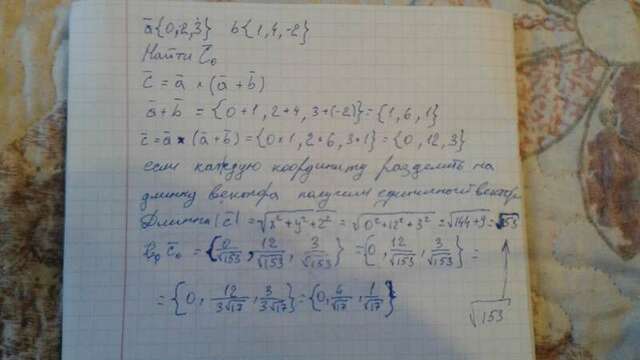 ā{0,2,3}   b{1,4,-2}
Найти c̄₀
c̄ = ā × (ā+b̄)
ā+b̄ = {0+1, 2+4, 3+(-2)} = {1, 6, 1}
c̄ = ā × (ā+b̄) = {0*1, 2*6, 3*1} = {0, 12, 3}
если каждую координату разделить на
длину вектора получим единичный вектор
Длинна |c̄| = √(x²+y²+z²) = √(0²+12²+3²) = √(144+9) = √153
c̄₀ = {0/√153, 12/√153, 3/√153} = {0, 12/√153, 3/√153} =
= {0, 12/3√17, 3/3√17} = {0, 4/√17, 1/√17}
√153